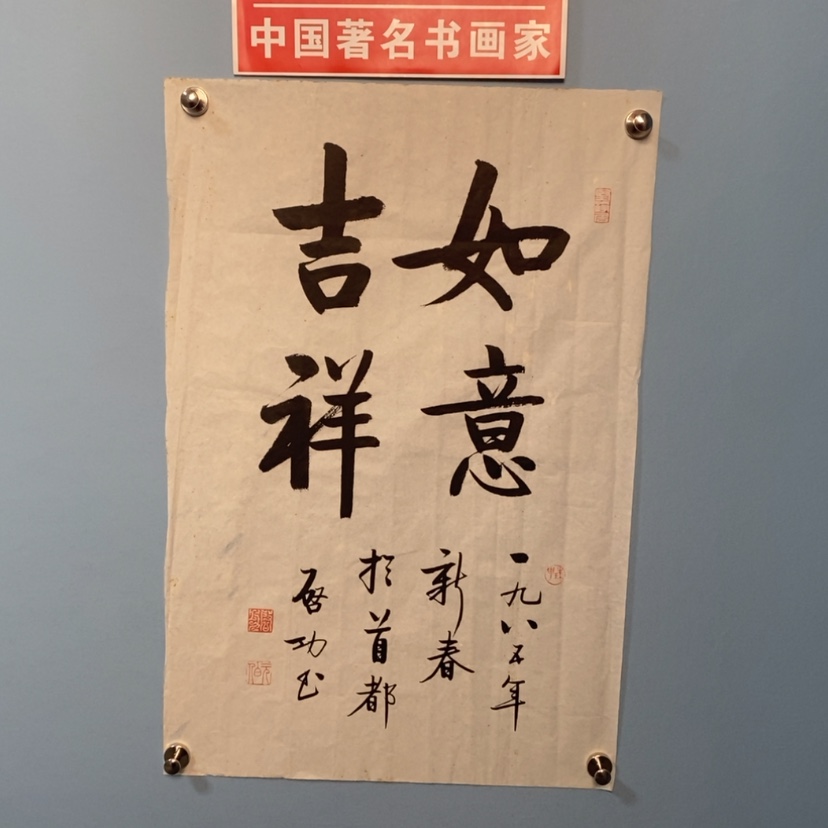 中国著名书画家
如意
吉祥
一九八五年
新春
於首都
启功书